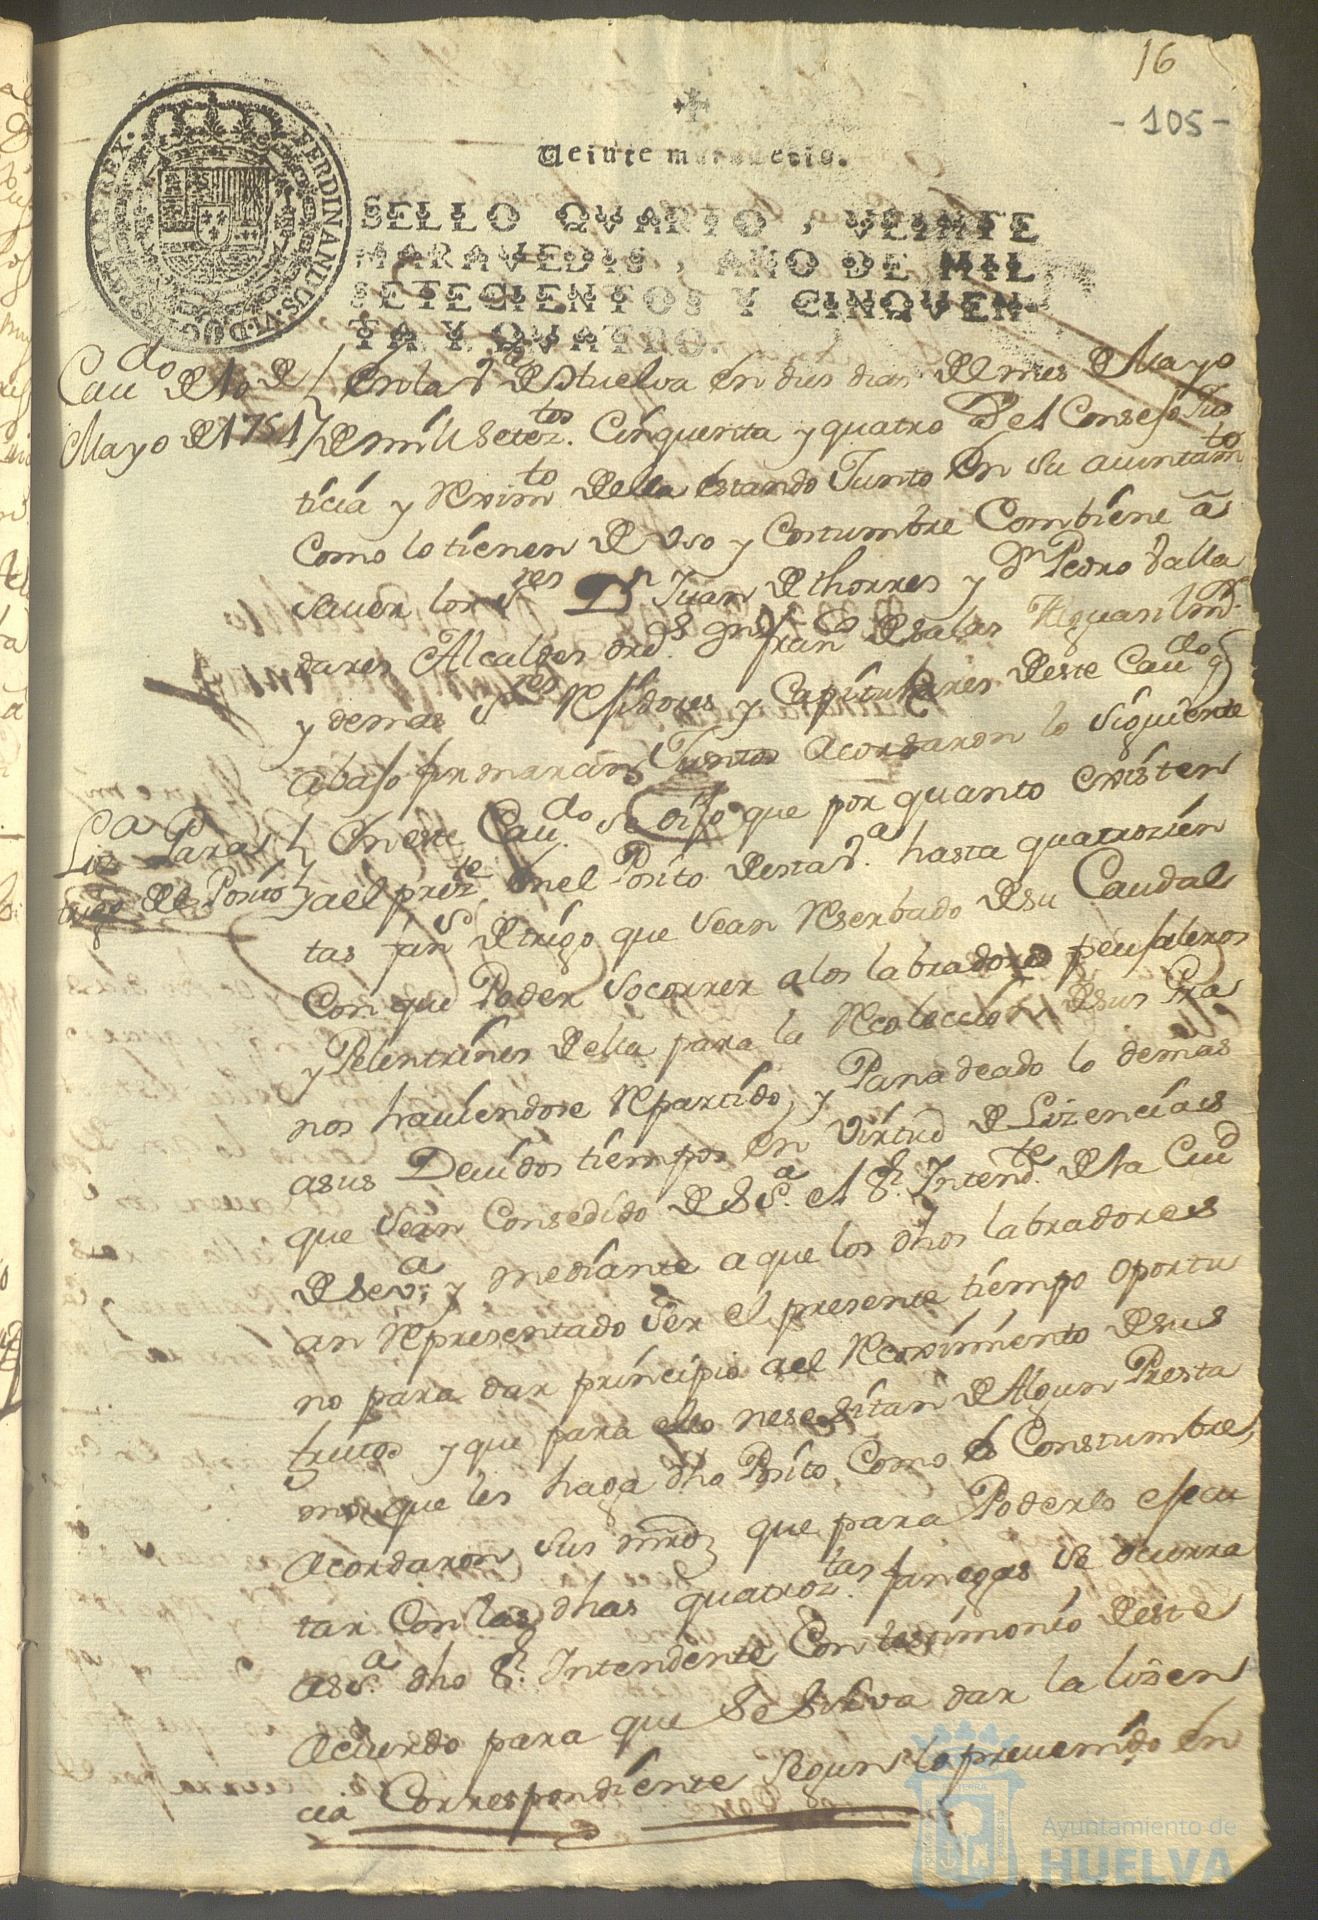 16
- 105 -
Veinte maravedis.
SELLO QVARTO, VEINTE
MARAVEDIS, AÑO DE MIL
SETECIENTOS Y CINQVEN-
TA Y QVATRO.
FERDINANDUS VI D G HISPANIAR REX
Caudo de 10 de
Mayo de 1754
En la Va de Huelva en dies dias del mes de Mayo
de mill Seteztos Cinquenta y quatro el Consejo Jus
ticia y Reximto della estando Junto en su aiuntamto
Como lo tienen de Uso y Costumbre Combiene a
sauer los Sres Dn Juan de thorres y Dn Pedro Valla
dares Alcaldes ords Franco de Salas Alguasil mr
y demas Sres Rexidores y Capitulares deste Caudo q
abajo firmaran Juntos Acordaron lo siguiente
Lza Para el
trigo del Posito
En este Caudo se dijo que por quanto existen
ael preste en el Posito desta Va hasta quatrozien
tas fans de trigo que sean Reserbado de su Caudal
Con que Poder socorrer a los labradores peujaleros
y Pelentrines della para la Recoleccion de sus Gra
nos hauiendose Repartido, y Panadeado lo demas
asus Deuidos tiempos en virtud de Lizencias
que sean Consedido de S Sa el Sr Intendte de la Ciud
de Seva; y mediante a que los dhos labradores
an Representado Ser el presente tiempo oportu
no para dar principio ael Recoximiento de sus
frutos y que para ello nesesitan de Algun Presta
mo que les haga dho Posito, Como es Constumbre,
Acordaron sus mrds que para Poderlo ejecu
tar Con las dhas quatroztas fanegas se ocurra
a su Sa dho Sr Intendente Con testimonio deste
Acuerdo para que Se Sirva dar la lizen
cia Correspondiente segun lo preuenido en
Ayuntamiento de
HUELVA